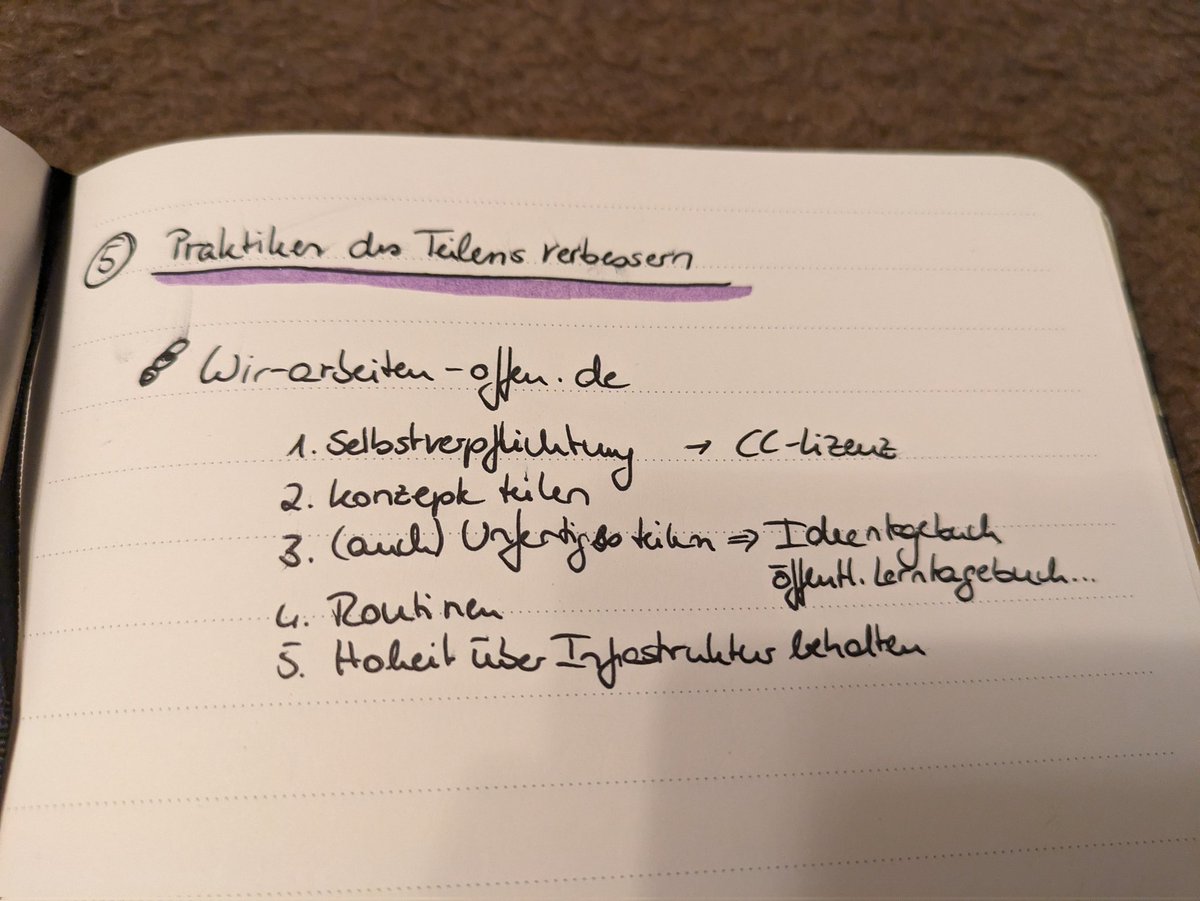 ⑤ Praktiken des Teilens verbessern
Wir-arbeiten-offen.de
1. Selbstverpflichtung → CC-Lizenz
2. Konzept teilen
3. (auch) Unfertiges teilen ⇒ Ideentagebuch
öffentl. Lerntagebuch...
4. Routinen
5. Hoheit über Infrastruktur behalten